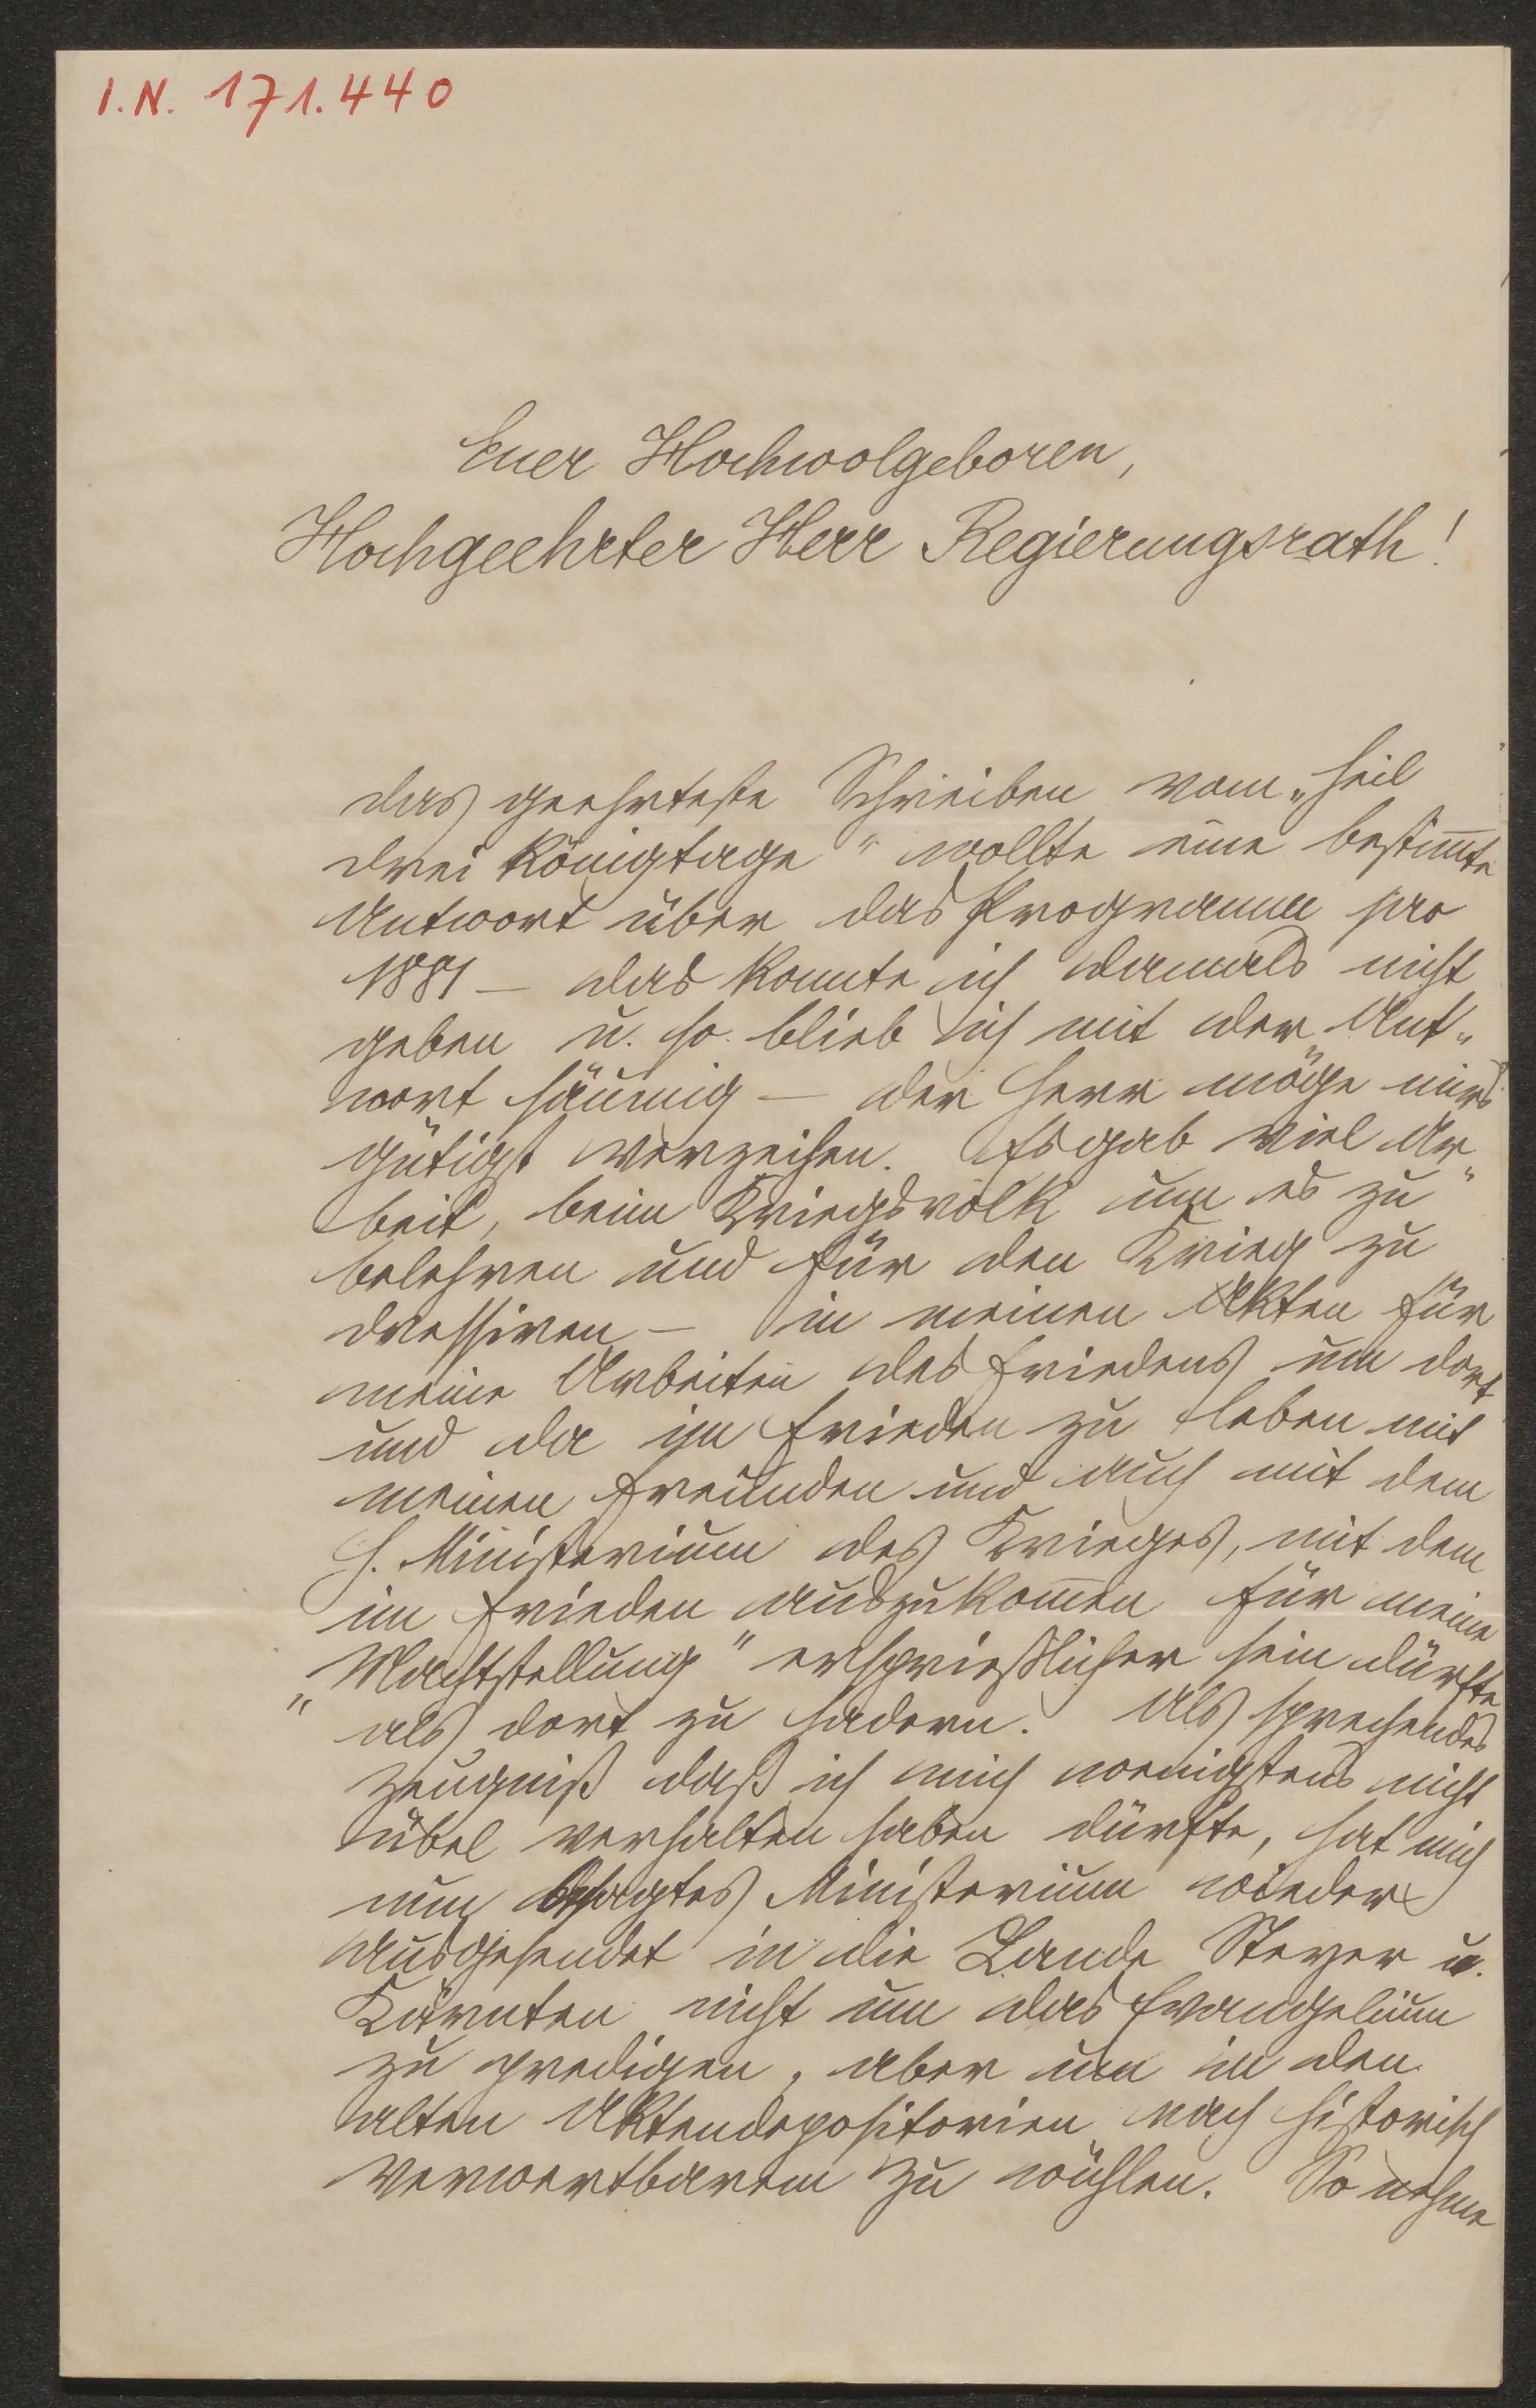 I.N. 171.440
Euer Hochwolgeboren,
Hochgeehrter Herr Regierungsrath!
das geehrteste Schreiben vom „heil
drei Königtage“ wollte eine bestim̄te
Antwort über das Programm pro
1881 – das konnte ich damals nicht
geben u. so blieb ich mit der Ant„
wort säumig – der Herr möge mirs
gütigst verzeihen. Es gab viel Ar„
beit, beim Kriegsvolk um es zu
belehren und für den Krieg zu
dressiren – in meinen Akten für
meine Arbeiten des Friedens um dort
und da im Frieden zu leben mit
meinen Freunden und auch mit dem
h. Ministerium des Krieges, mit dem
im Frieden auszukom̄en für meine
„Machtstellung“ ersprießlicher sein dürfte
als dort zu hadern. Als sprechendes
Zeugniß daß ich mich wenigstens nicht
übel verhalten haben dürfte, hat mich
nun besagtes Ministerium wieder
ausgesendet in die Lande Steyer u.
Kärnten nicht um das Evangelium
zu predigen, aber um in den
alten Aktendepositorien nach historisch
Verwertbarem zu wühlen. So nehme